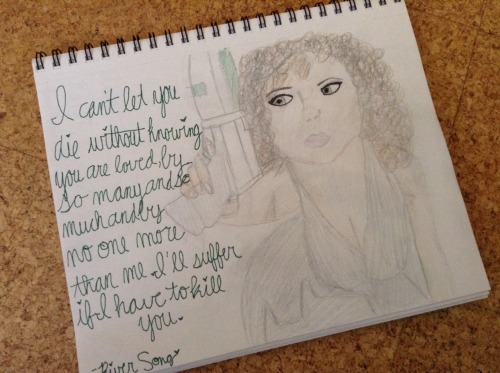 I can't let you
die without knowing
you are loved, by
so many and so
much and by
no one more
than me I'll suffer
if I have to kill
you.
-River Song